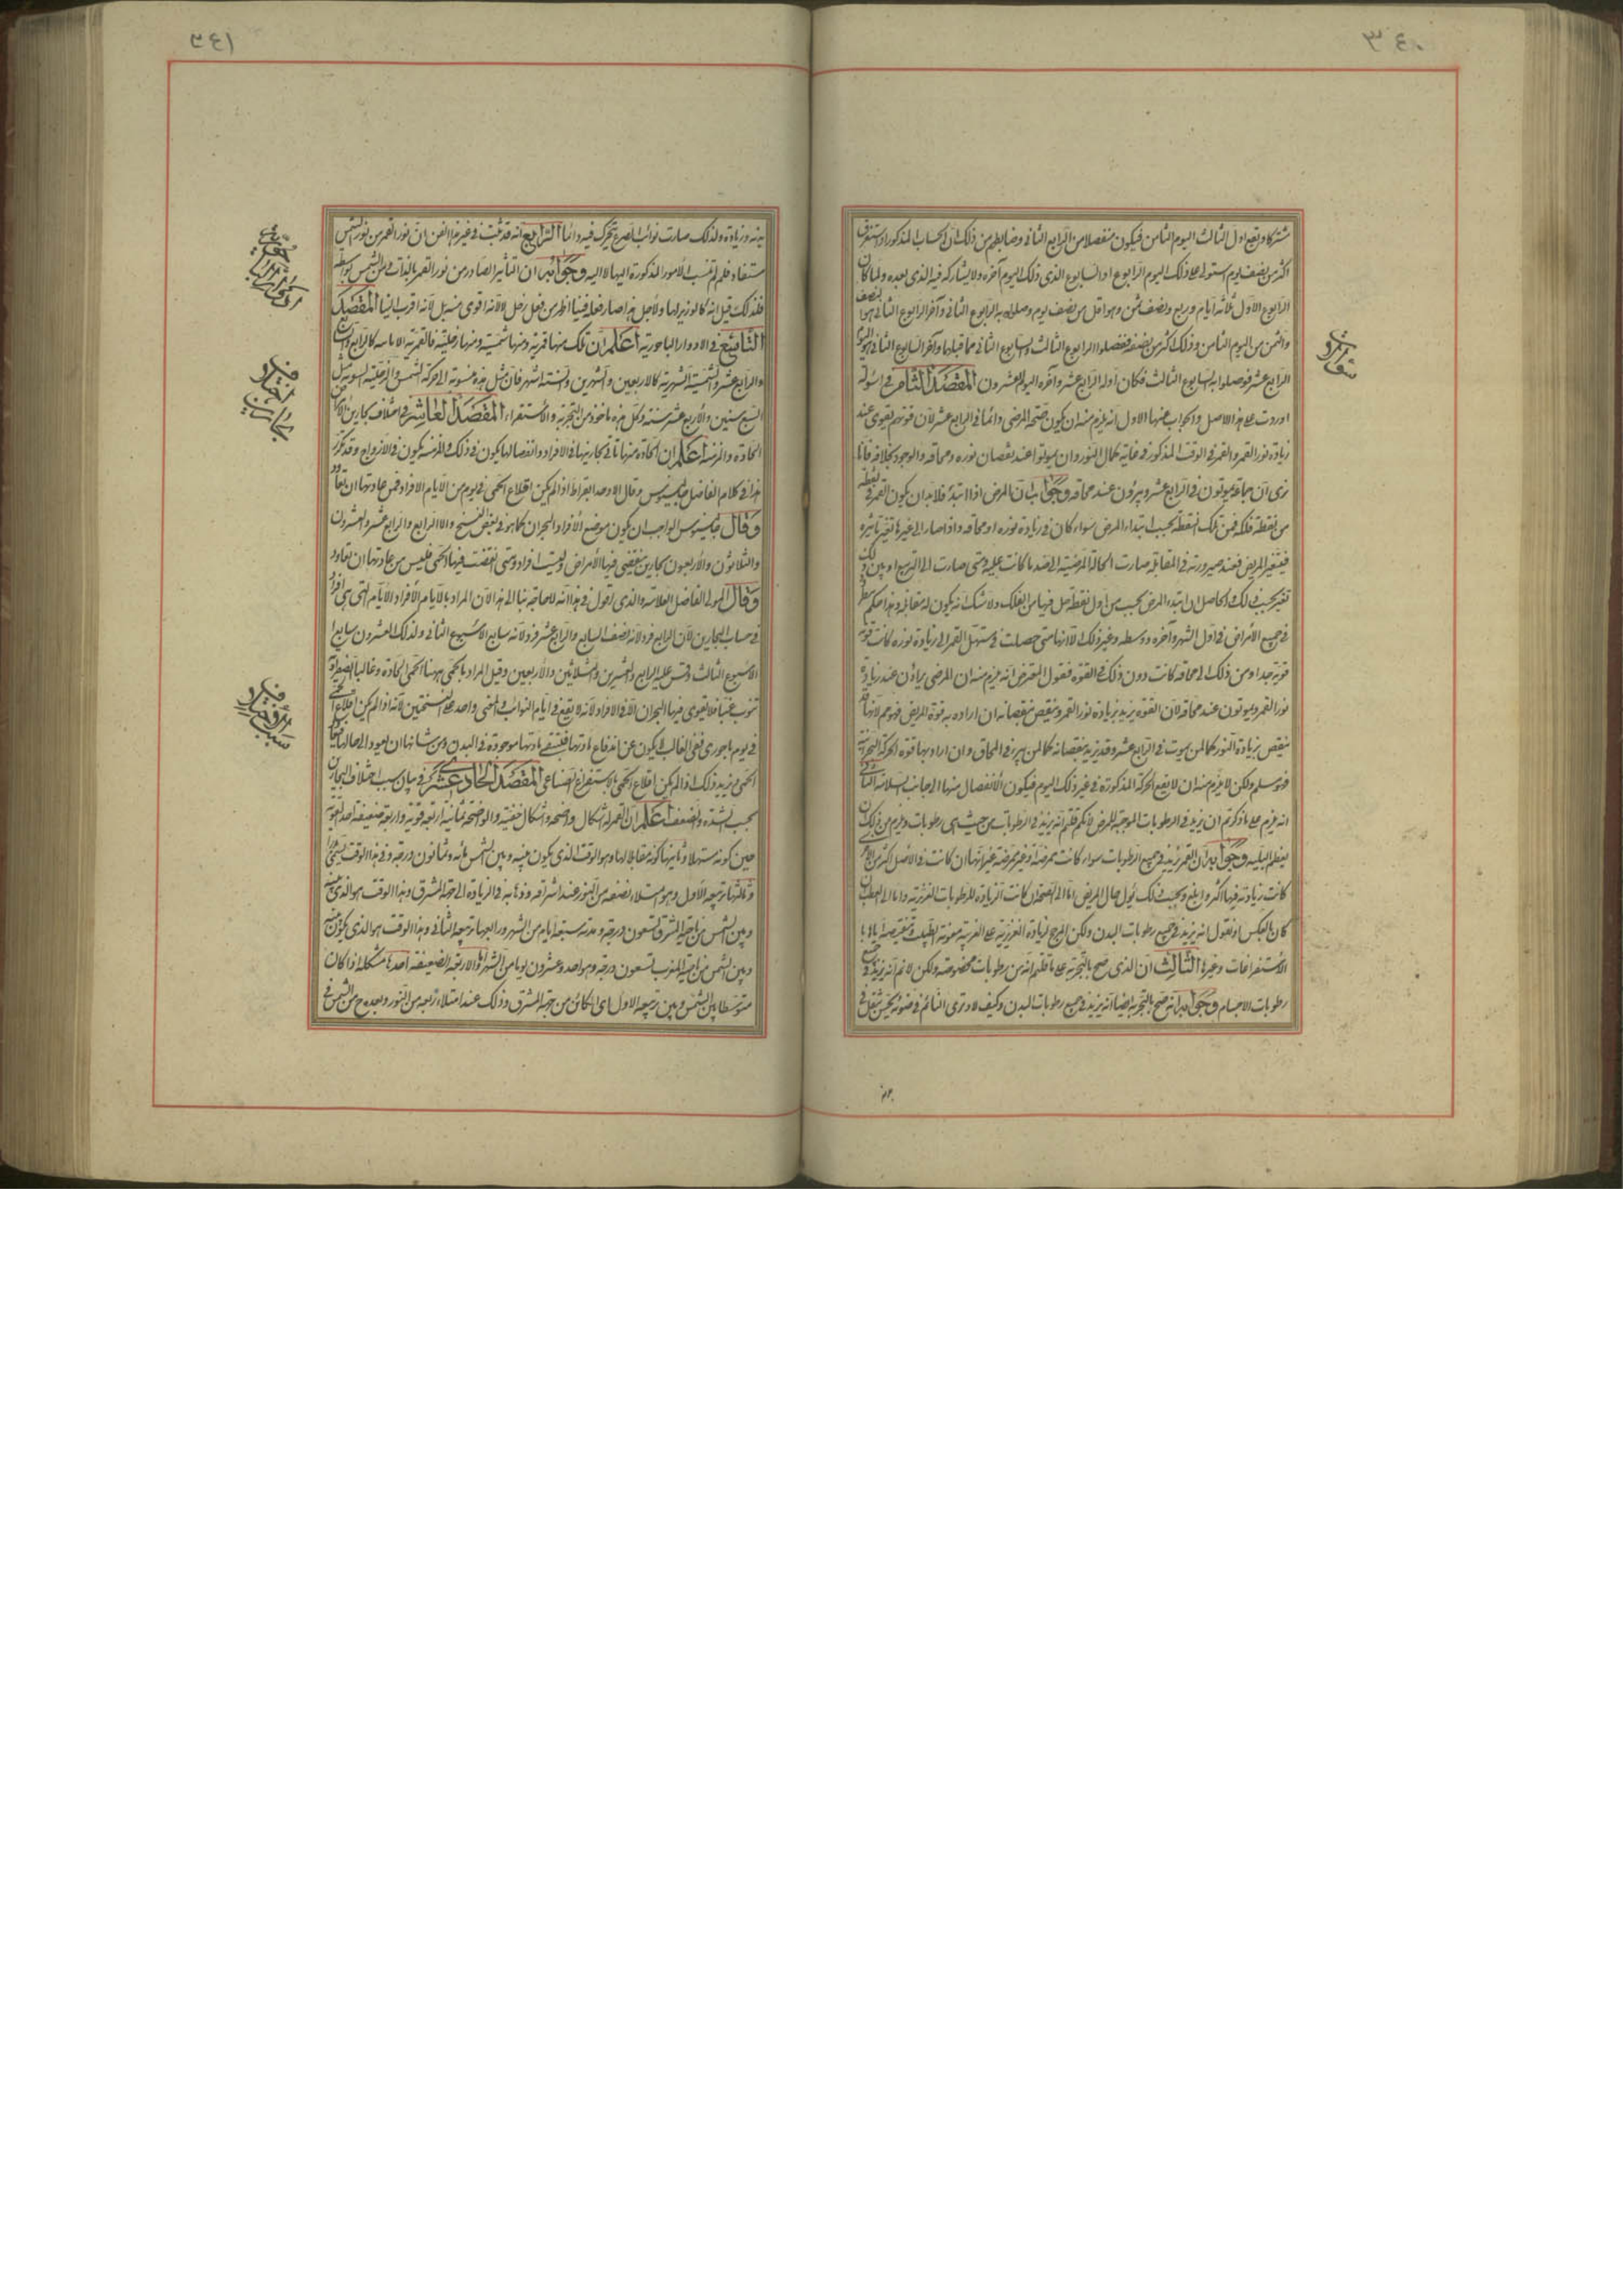 ٣٤٠
مشتركا ويقع اول الثالث اليوم الثامن فيكون منفصلا من الرابع الثانى وضابطهم من ذلك ان الحساب المذكور اذا استغرق
اكثر من نصف يوم ستولى على ذلك اليوم الرابوع او السابوع الذى ذلك اليوم آخره ولا يشاركه فيه الذى بعده ولما كان
الرابوع الاول ثلاثة ايام وربع ونصف ثمن وهو اقل من نصف يوم وصلوا به الرابوع الثانى وآخر الرابوع الثانى هو نصف
والثمن من اليوم الثامن وذلك اكثر من نصفه ففصلوا الرابوع الثالث والسابوع الثانى مما قبلها وآخر السابوع الثانى هو اليوم
الرابع عشر فوصلوا به السابوع الثالث فكان اوله الرابع عشر وآخره اليوم العشرون المقصد الثامن فى اسولة
اوردت على هذا الاصل والجواب عنها الاول انه يلزم منه ان يكون صحة المرضى دائما فى الرابع عشر لان قوتهم تقوى عند
زيادة نور القمر والقمر فى الوقت المذكور فى غاية كمال النور وان يموتوا عند نقصان نوره ومحاقه والوجود بخلافه فانا
نرى ان جماعة يموتون فى الرابع عشر ويبرؤن عند محاقه وجوابه ان المرض اذا ابتدأ فلابد ان يكون القمر فى نقطة
من نقطة فلكه فمن تلك النقطة يحسب ابتداء المرض سواء كان فى زيادة نوره او محاقه واذا صار الى غيرها تغير تاثيره
فيتغير المريض فعند صيرورته فى المقابلة صارت الحالة المرضية الى ضد ما كانت عليه ومتى صارت الى التربيع او بين ذلك
تغير بحسب ذلك والحاصل ان ابتداء المرض يحسب من اول نقطة حل فيها من الفلك ولا شك انه يكون له مقابلة وهذا حكم مطرد
فى جميع الأمراض فى اول الشهر وآخره ووسطه وغير ذلك الا انها متى حصلت فى مستهل القمر الى زيادة نوره كانت قوته
قوية جدا ومن ذلك الى محاقه كانت دون ذلك فى القوة فقول المعترض انه يلزم منه ان المرضى يبرأون عند زيادة
نور القمر ويموتون عند محاقه لان القوة تزيد بزيادة نور القمر وتنقص بنقصانه ان اراد به قوة المريض فهو هم لانها قد
تنقص بزيادة النور كما لمن يموت فى الرابع عشر وقد تزيد بنقصانه كما لمن يبرء فى المحاق وان اراد بها قوة الحركة البحرانية
فهو مسلم ولكن لا يلزم منه ان لا يقع الحركة المذكورة فى غير ذلك اليوم فيكون الانفصال منها الى جانب السلامة الثانى
انه يلزم على ما ذكرتم ان يزيد فى الرطوبات الموجبة للمرض لانكم قلتم انه يزيد فى الرطوبات من حيث هى رطوبات ويلزم من ذلك ان
يعظم البلية وجوابه ان القمر يزيد فى جميع الرطوبات سواء كانت ممرضة او غير ممرضة غير انها ان كانت فى الأصل اكثر من الاخرى
كانت زيادته فيها اكثر وابلغ وبحسب ذلك يؤل حال المريض اما الى الصحة ان كانت الزيادة للرطوبات الغريزية واما الى العطب ان
كان بالعكس او نقول انه يزيد فى جميع رطوبات البدن ولكن المرجح لزيادة الغريزية على الغريبة معونة الطبيب وتنقيصه اياها با
الاستفراغات وغيرها الثالث ان الذى صح بالتجربة على ما قلتم انه من رطوبات مخصوصة ولكن لا نم انه يزيد فى جميع
رطوبات الاجسام وجوابه انه صح بالتجربة ايضا انه يزيد فى جميع رطوبات البدن وكيف لا وترى النائم فى ضوئه يحس بثقل فى
٣٤١
بدنه وزيادة ولذلك صارت نوائب الصرع تتحرك فيه دائما الرابع انه قد ثبت فى غير هذا الفن ان نور القمر من نور الشمس
مستفاد فلم لم تنسب الأمور المذكورة اليها لا اليه وجوابه ان التاثير الصادر من نور القمر بالذات من الشمس بواسطة
فلذلك قيل انه كالوزير لها ولاجل هذا صار فعله فينا اظهر من فعل زحل لانه اقوى من زحل لانه اقرب الينا المقصد
التاسع فى الادوار الباحورية اعلم ان تلك منها قمرية ومنها شمسية ومنها زحلية فالقمرية الايامية كالرابع والسابع
والرابع عشر والشمسية الشهرية كالاربعين والشهرين والستة اشهر فان مثل هذه منسوبة الى حركة الشمس والزحلية السنوية مثل
السبع سنين والأربع عشر سنة وكل هذه ماخوذ من التجربة والأستقراء المقصد العاشر فى اختلاف بحارين الأمراض
الحادة والمزمنة اعلم ان الحادة منها تاتى بحارينها فى الافراد وانفصالها يكون فى ذلك والمزمنة يكون فى الازواج وقد تكرر
هذا فى كلام الفاضل جالينوس وقال الاوحد ابقراط اذا لم يكن اقلاع الحمى فى يوم من الأيام الافراد فمن عادتها ان تعاود
وقال جالينوس الواجب ان يكون موضع الأفراد البحران كما هو فى بعض النسخ والا الرابع والرابع عشر والعشرون
والثلاثون والأربعون بحارين تنقضى فيها الأمراض وليست افرادا ومتى انقضت فيها الحمى فليس من عادتها ان تعاود
وقال المولى الفاضل العلامة والذى اقول فى هذا انه لا حاجة بنا الى هذا لأن المراد بالايام الأفراد الأيام التى هى افراد
فى حساب البحارين لان الرابع فرد لانه نصف السابع والرابع عشر فرد لانه سابع الأسبوع الثانى ولذلك العشرون سابع
الأسبوع الثالث وقس عليه الرابع والعشرين والثلاثين والأربعين وقيل المراد بالحمى ههنا الحمى الحادة وغالبا الصفراوية
تنوب غبا فلا يقوى فيها البحران الا فى الافراد لانه لا يقع فى ايام النوائب والمعنى واحد على النسختين لانه اذا لم يكن اقلاع الحمى
فى يوم باحورى ففى الغالب لا يكون عن اندفاع مادتها فتبقى مادتها موجودة فى البدن ومن شانها ان يعود الى حالها فتعاود
الحمى ويزيد ذلك اذا لم يكن اقلاع الحمى بالاستفراغ الصناعى المقصد الحادى عشر فى بيان سبب اختلاف البحارين
بحسب الشدة والضعف اعلم ان القمر له اشكال واضحة واشكال خفية والواضحة ثمانية اربعة قوية واربعة ضعيفة احد القوية
حين كونه مستهلا وثانيها كونه مقابلا لها وهو الوقت الذى يكون بينه وبين الشمس مائة وثمانون درجة وفى هذا الوقت يسمى بدرا
وثالثها تربيعه الأول وهو امتلاء نصفه من النور عند اشراقه وذهابه فى الزيادة الى جهة المشرق وهذا الوقت هو الذى بينه
وبين الشمس من ناحية المشرق تسعون درجة ومدته سبعة ايام من الشهر ورابعها تربيعه الثانى وهذا الوقت هو الذى يكون بينه
وبين الشمس من ناحية المغرب تسعون درجة وهو احد وعشرون يوما من الشهر اما الأربعة الضعيفة احدها شكله اذا كان
متوسطا بين الشمس وبين تربيعه الاول اى الكائن من جهة المشرق وذلك عند امتلاء ربعه من النور وبعده ح من الشمس